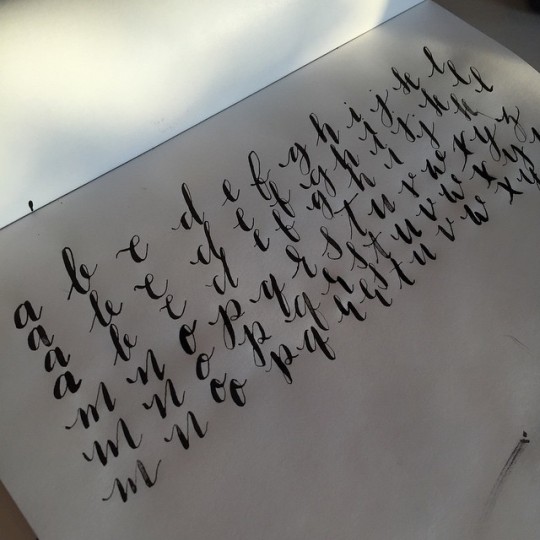 a b c d e f g h i j k l
a b c d e f g h i j k l
a b c d e f g h i j k l
m n o p q r s t u v w x y z
m n o p q r s t u v w x y
m n o o p q r s t u v w x y